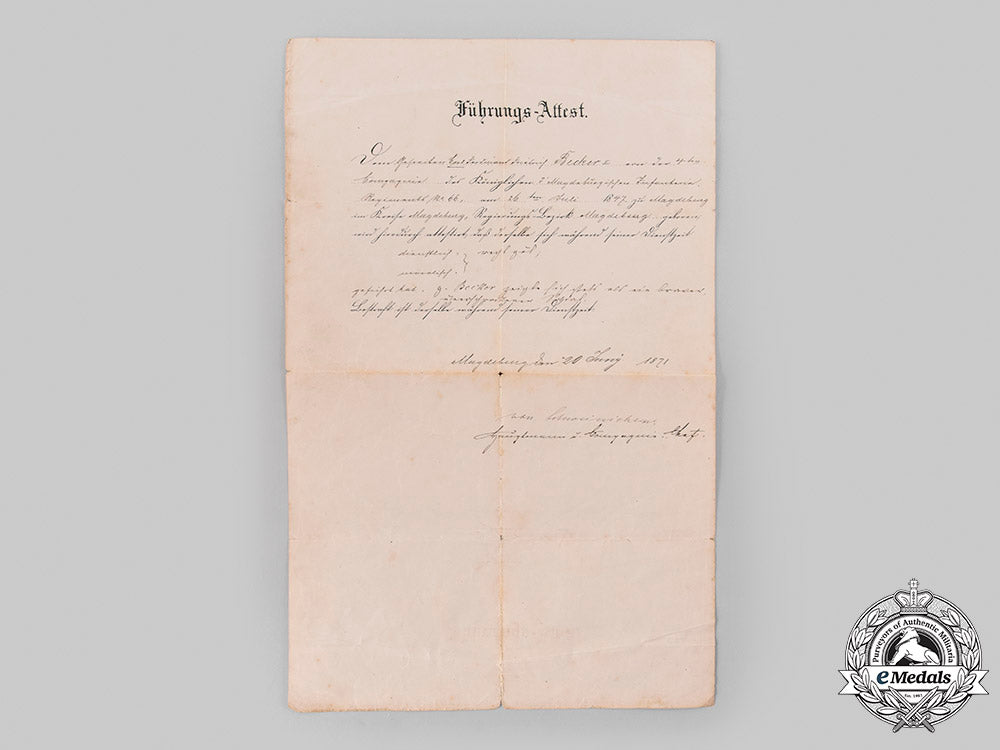 Führungs-Attest.
Dem Gefreiten Becker von der 4ten
Compagnie des Königlichen Magdeburgischen Infanterie
Regiments No. 66, am 26ten Juli 1847 zu Magdeburg
im Kreise Magdeburg, Regierungs-Bezirk Magdeburg geboren
wird hierdurch attestirt, daß derselbe sich während seiner Dienstzeit
dienstlich. } recht gut,
moralisch. }
geführt hat. Becker zeigte sich stets als ein braver,
Soldat.
Bestraft ist derselbe während seiner Dienstzeit
Magdeburg den 20 Juny 1871
von
Hauptmann u Compagnie-Chef.
Purveyors of Authentic Militaria
eMedals